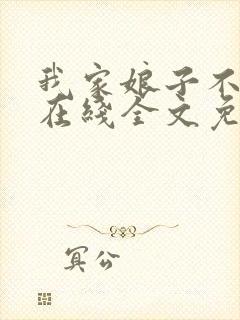 我家娘子不
在线全文免
冥公